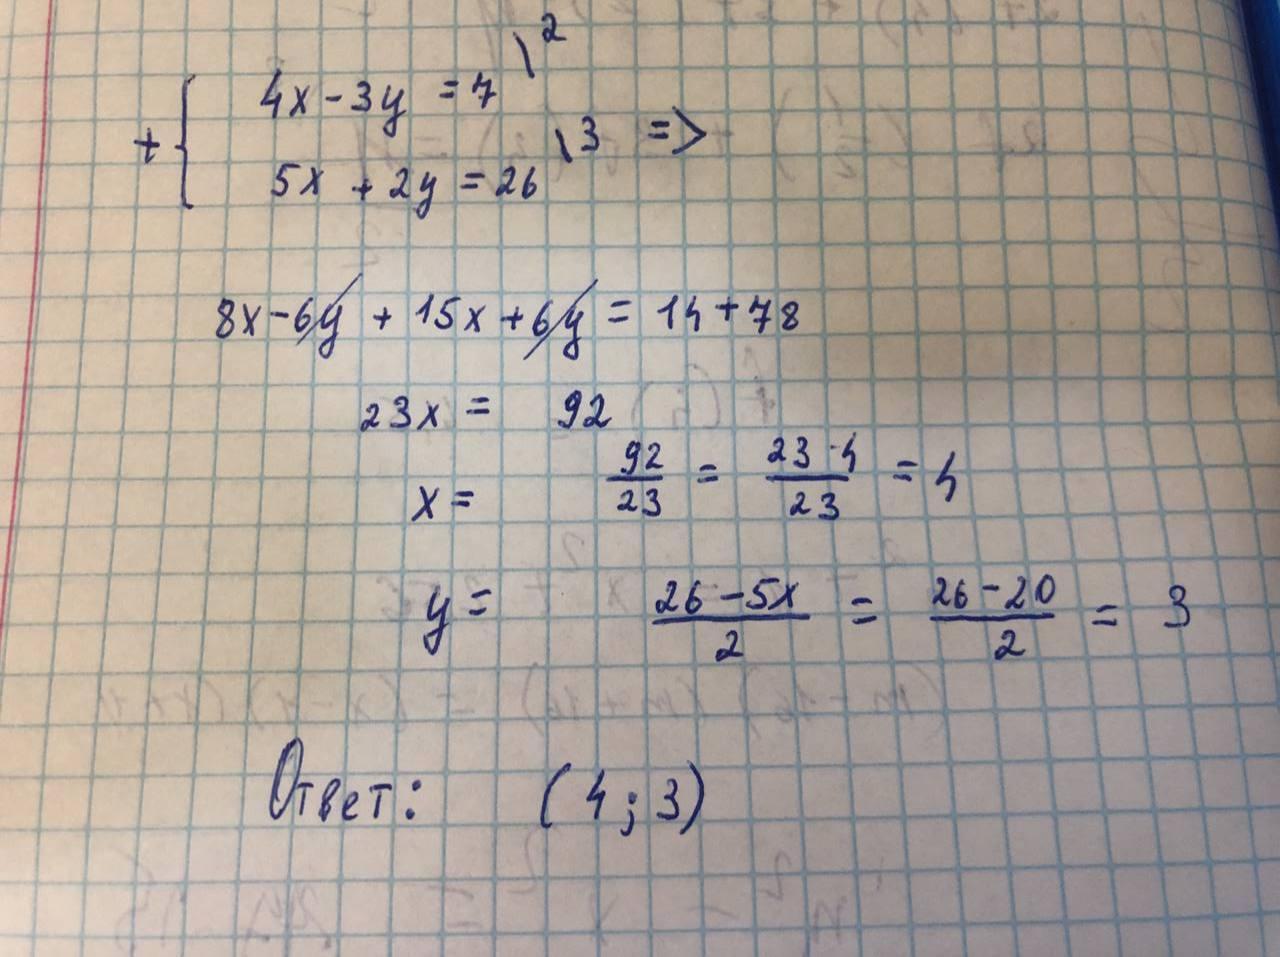 + { 4x - 3y = 7 \2
5x + 2y = 26 \3 =>
8x - 6y + 15x + 6y = 14 + 78
23x = 92
x = 92/23 = 23·4/23 = 4
y = 26 - 5x/2 = 26 - 20/2 = 3
Ответ: (4; 3)